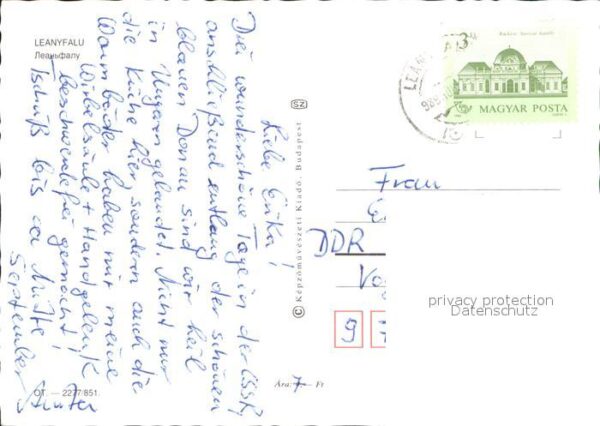 LEANYFALU
Леаньфалу
Liebe Erika!
Die wunderschöne Tage in der CSSR,
anschließend entlang der schönen
blauen Donau sind wir heil
in Ungarn gelandet. Nicht nur
die Küche hier, sondern auch die
Warmbäder haben mir meine
Wirbelsäule + Handgelenk
beschwerdefrei gemacht!
Tschüß bis ca Mitte
September
OT. — 2277/851.
SZ
© Képzőművészeti Kiadó, Budapest
Ára: 7- Ft
MAGYAR POSTA
Frau
DDR
9
privacy protection
Datenschutz